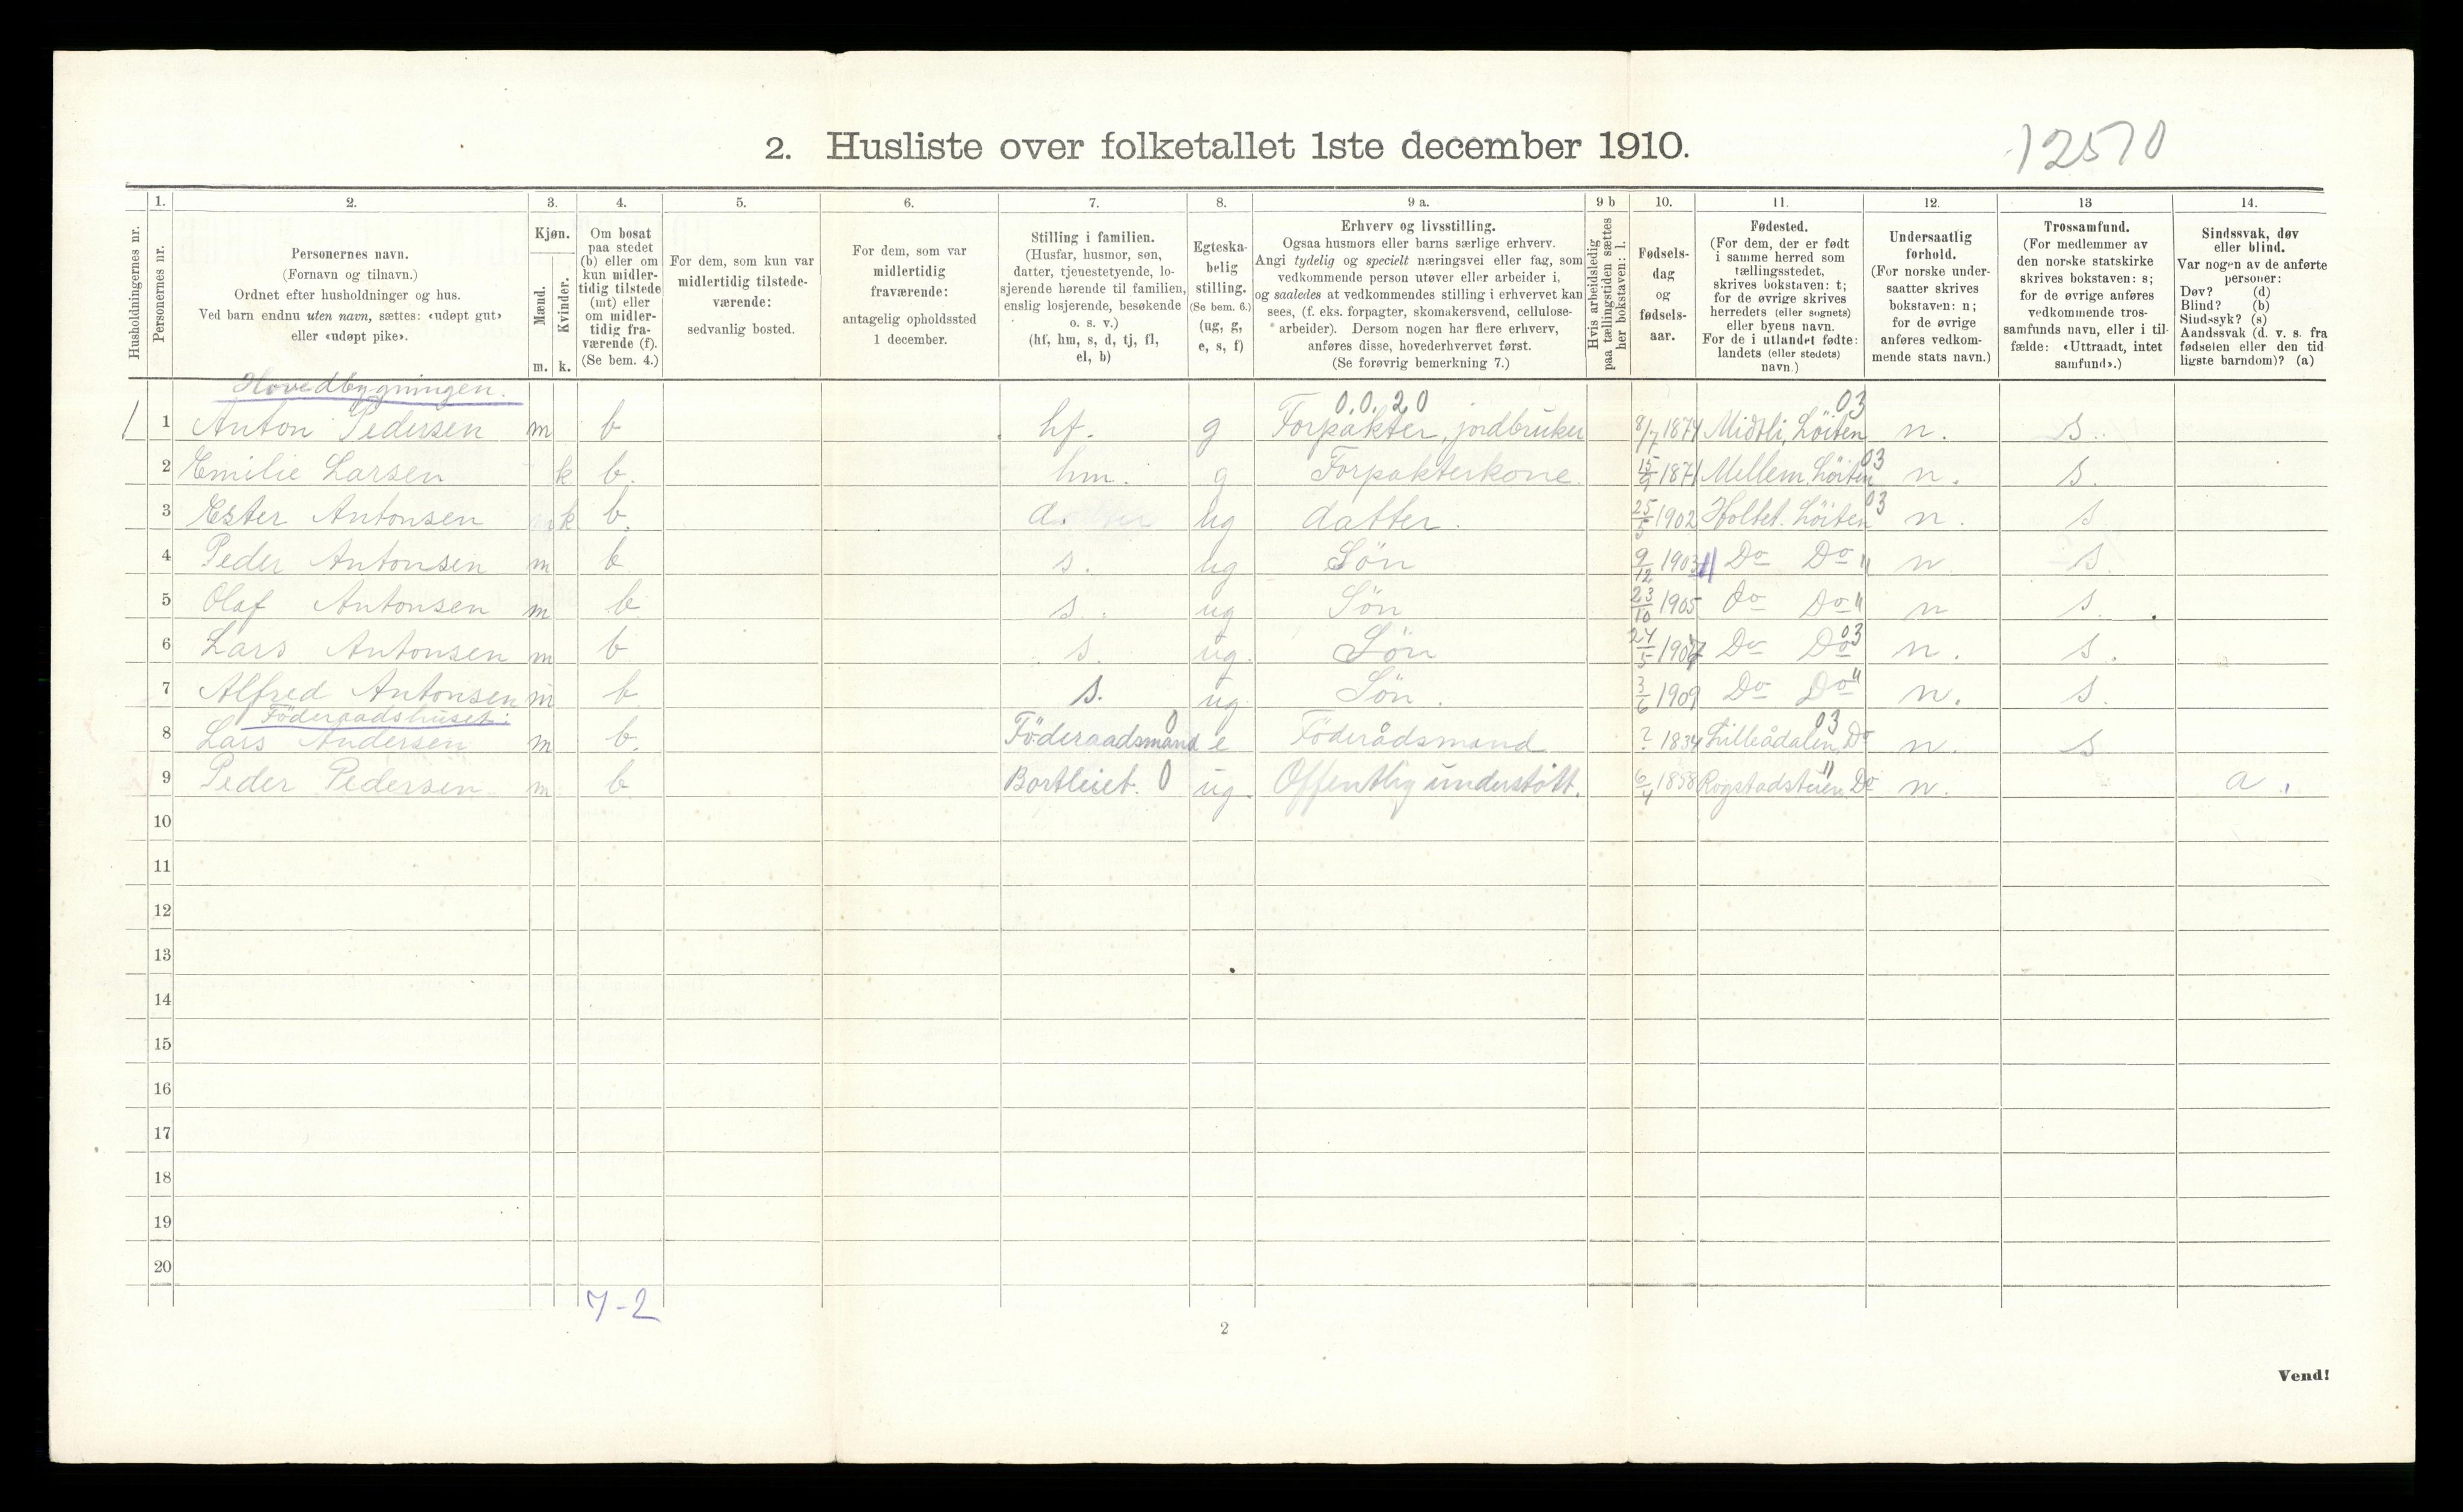 2. Husliste over folketallet 1ste december 1910.
12570
Husholdningernes nr.
1.
Personernes nr.
2.
Personernes navn.
(Fornavn og tilnavn.)
Ordnet efter husholdninger og hus.
Ved barn endnu uten navn, sættes: «udøpt gut»
eller «udøpt pike».
3.
Kjøn.
Mænd.
Kvinder.
m. k.
4.
Om bosat
paa stedet
(b) eller om
kun midler-
tidig tilstede
(mt) eller
om midler-
tidig fra-
værende (f).
(Se bem. 4.)
5.
For dem, som kun var
midlertidig tilstede-
værende:
sedvanlig bosted.
6.
For dem, som var
midlertidig
fraværende:
antagelig opholdssted
1 december.
7.
Stilling i familien.
(Husfar, husmor, søn,
datter, tjenestetyende, lo-
sjerende hørende til familien,
enslig losjerende, besøkende
o. s. v.)
(hf, hm, s, d, tj, fl,
el, b)
8.
Egteska-
belig
stilling.
(Se bem. 6.)
(ug, g,
e, s, f)
9 a.
Erhverv og livsstilling.
Ogsaa husmors eller barns særlige erhverv.
Angi tydelig og specielt næringsvei eller fag, som
vedkommende person utøver eller arbeider i,
og saaledes at vedkommendes stilling i erhvervet kan
sees, (f. eks. forpagter, skomakersvend, cellulose-
arbeider). Dersom nogen har flere erhverv,
anføres disse, hovederhvervet først.
(Se forøvrig bemerkning 7.)
9 b
Hvis arbeidsledig
paa tællingstiden sættes
her bokstaven: l.
10.
Fødsels-
dag
og
fødsels-
aar.
11.
Fødested.
(For dem, der er født
i samme herred som
tællingsstedet,
skrives bokstaven: t;
for de øvrige skrives
herredets (eller sognets)
eller byens navn.
For de i utlandet fødte:
landets (eller stedets)
navn.)
12.
Undersaatlig
forhold.
(For norske under-
saatter skrives
bokstaven: n;
for de øvrige
anføres vedkom-
mende stats navn.)
13
Trossamfund.
(For medlemmer av
den norske statskirke
skrives bokstaven: s;
for de øvrige anføres
vedkommende tros-
samfunds navn, eller i til-
fælde: «Uttraadt, intet
samfund».)
14.
Sindssvak, døv
eller blind.
Var nogen av de anførte
personer:
Døv? (d)
Blind? (b)
Sindssyk? (s)
Aandssvak (d. v. s. fra
fødselen eller den tid
ligste barndom)? (a)
Hovedbygningen.
0.0.20 03
1 Anton Pedersen m b hf. g Forpakter, jordbruker 8/7 1874 Midtli, Löiten n. s.
2 Emilie Larsen k b. hm. g Forpakterkone. 15/9 1871 Mellem, Löiten 03 n. s.
3 Ester Antonsen k b. d. ug datter. 25/5 1902 Holtet. Löiten 03 n. s
4 Peder Antonsen m b s. ug Sön 9/12 1903 Do Do " n s.
5 Olaf Antonsen m b s. ug Sön 23/10 1905 do Do " n s.
6 Lars Antonsen m b s. ug. Sön 24/5 1907 Do Do 03 n. s.
7 Alfred Antonsen m b s. ug Sön. 3/6 1909 Do Do " n. s.
Föderaadshuset:
8 Lars Andersen m b. Föderaadsmand 0 e Föderådsmand ? 1834 Lilleådalen, Do 03 n. s
9 Peder Pedersen m b Bortleiet. 0 ug. Offentlig understött. 6/4 1858 Rogstadsteien, Do " n. a.
10
11
12
13
14
15
16
17
18
19
20
7-2
2
Vend!